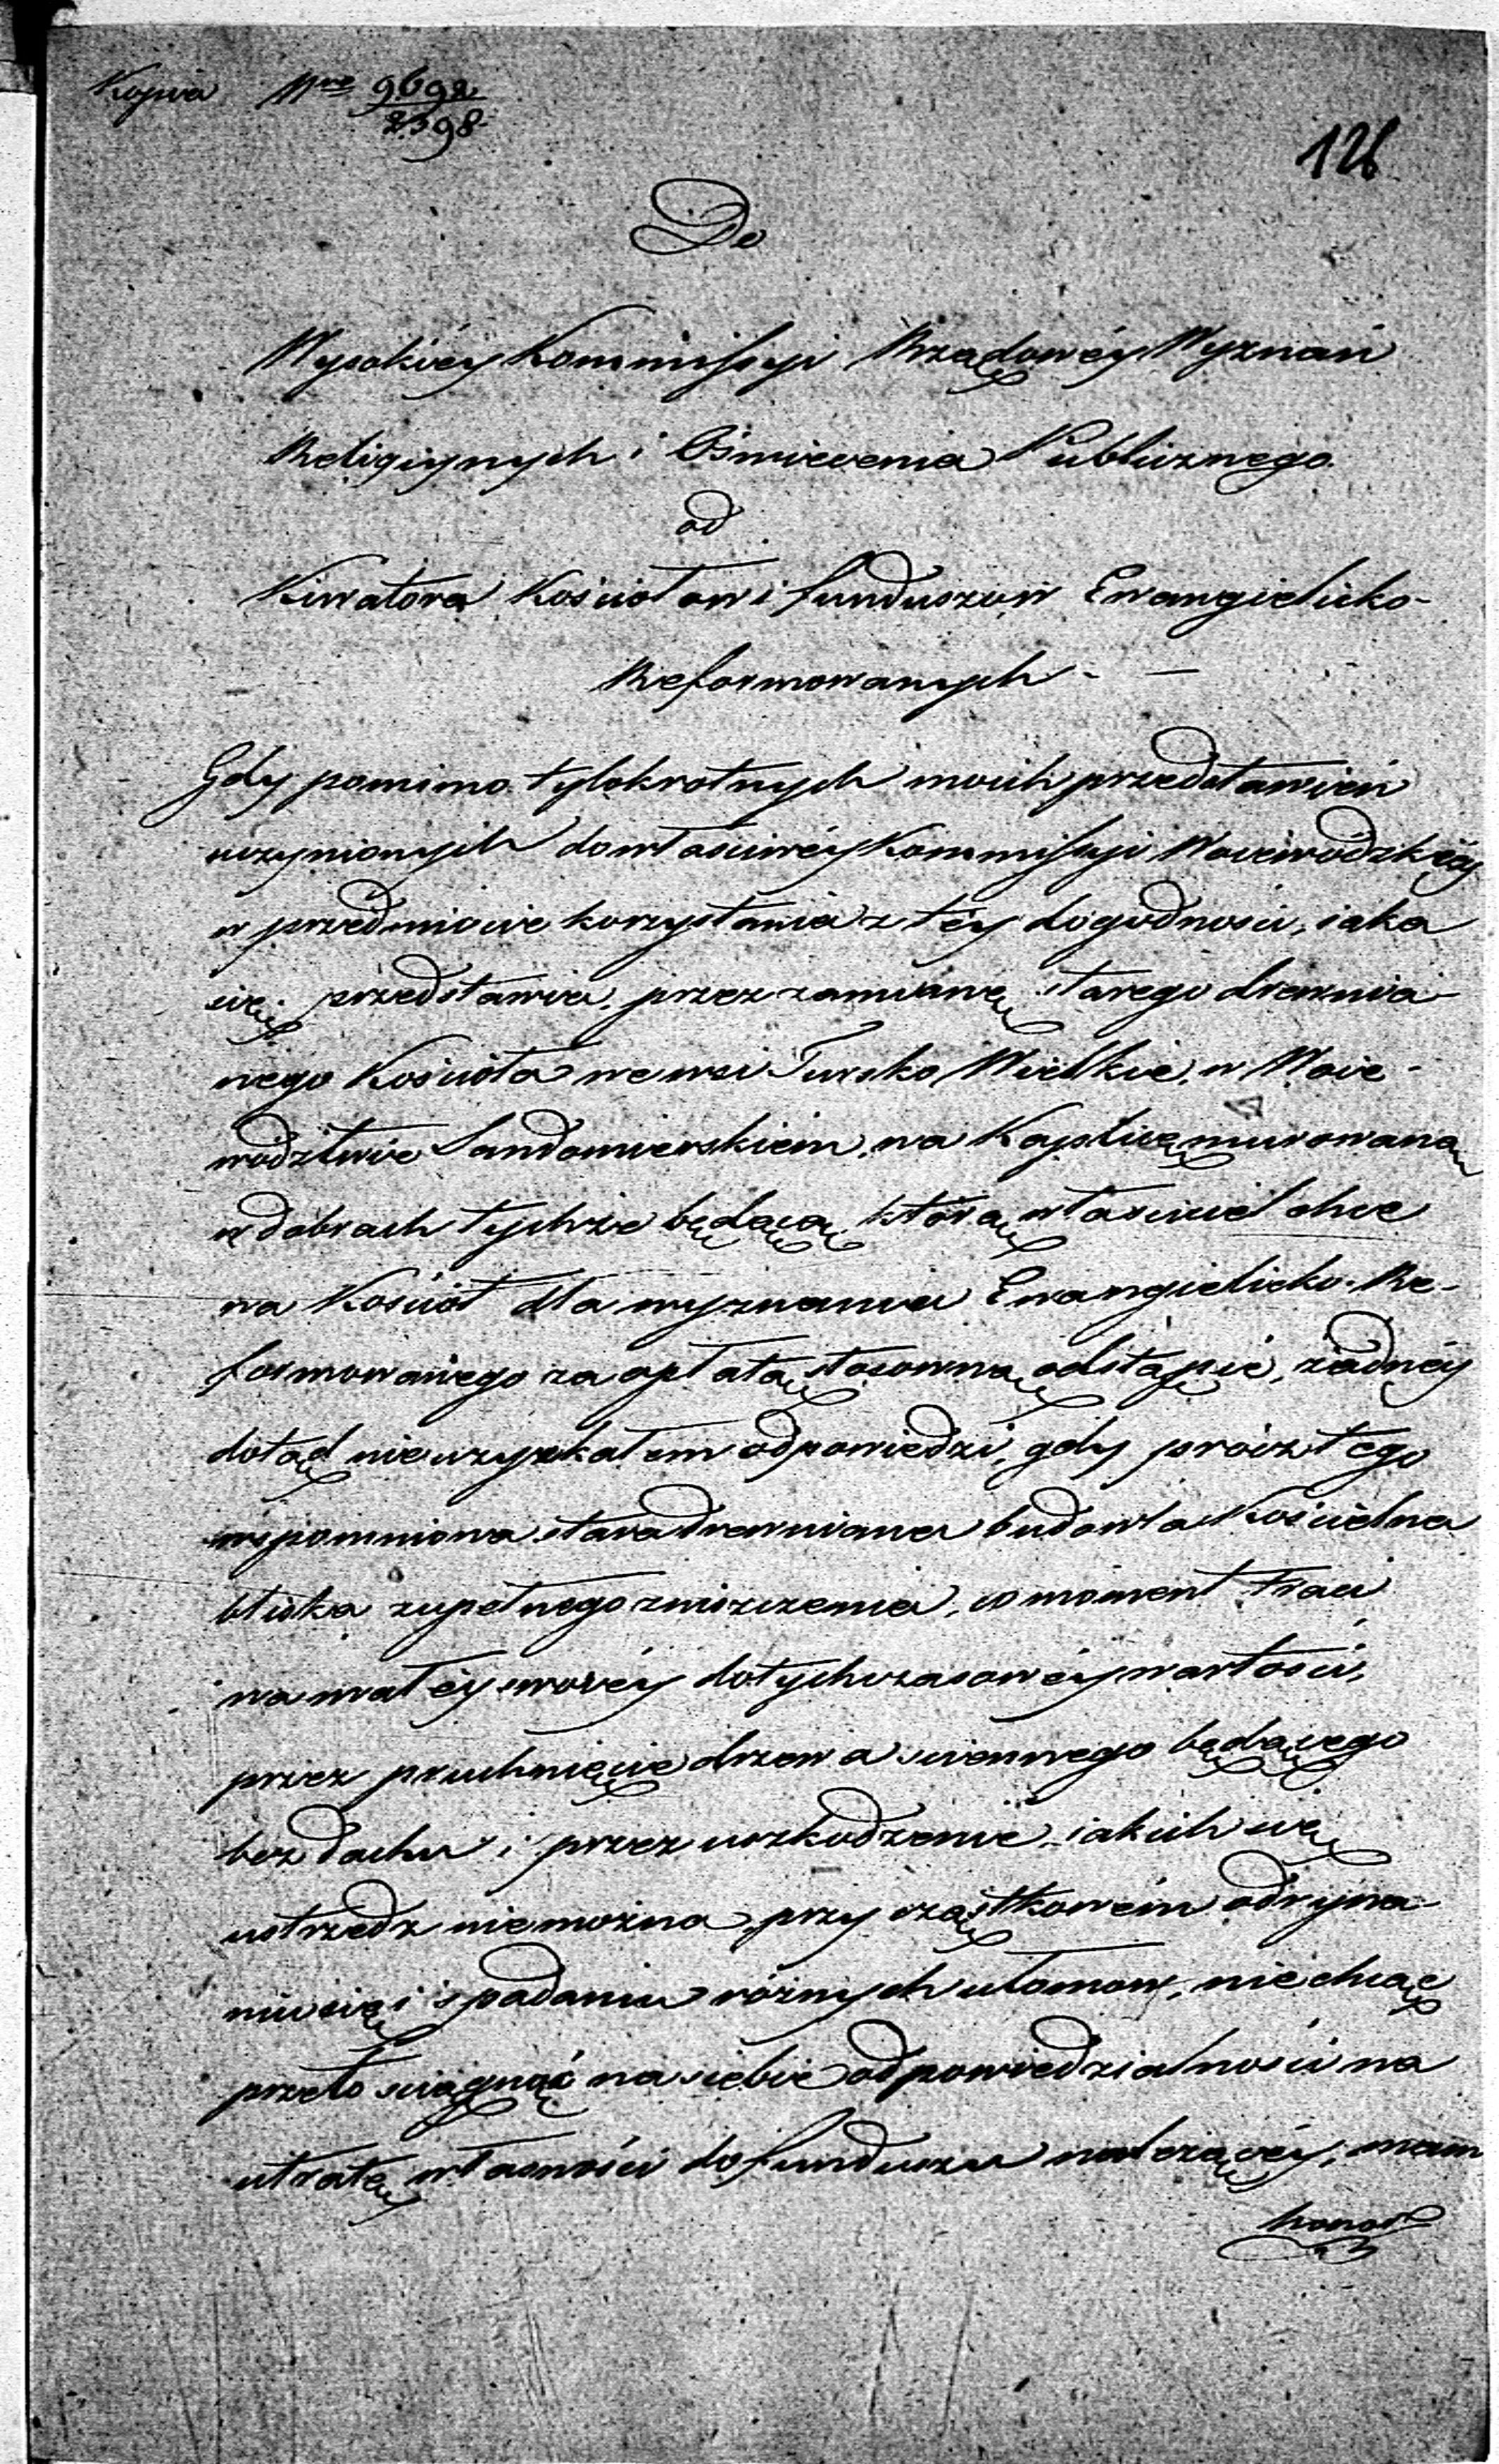 Kopia Nro 9692
2398
126
Do
Wysokiéy Kommissyi Rządowéy Wyznań
Religiynych i Oświecenia Publicznego
od
Kuratora Kościołow i funduszow Ewangielicko-
Reformowanych - —
Gdy pomimo tylokrotnych moich przedstawień
uczynionych do właściwéy Kommissyi Woiewódzkiéy
w przedmiocie korzystania z téy dogodności, iaka
się przedstawia, przez zamianę starego drewnia-
nego Kościoła we wsi Tursko Wielkie, w Woie-
wództwie Sandomierskiem, na Kaplicę murowaną
w dobrach tychże będącą, którą właściciel chce
na Kościoł dla wyznania Ewangielicko-Re-
formowanego za opłatą stosowną odstąpić, żadnéy
dotąd nie uzyskałem odpowiedzi, gdy prócz tego
wspomniona stara drewniana budowla Kościelna
bliska zupełnego zniszczenia, co moment traci
na małéy swoiéy dotychczasowéy wartości,
przez pruchnięcie drzewa sciennego będącego
bez dachu i przez uszkodzenie, iakich się
ustrzedz nie można przy cząstkowém odrywa-
niu się i spadaniu różnych ułomow, nie chcąc
przeto sciągnąć na siebie odpowiedzialności na
utratę własności do funduszu należącéy, mam
honor